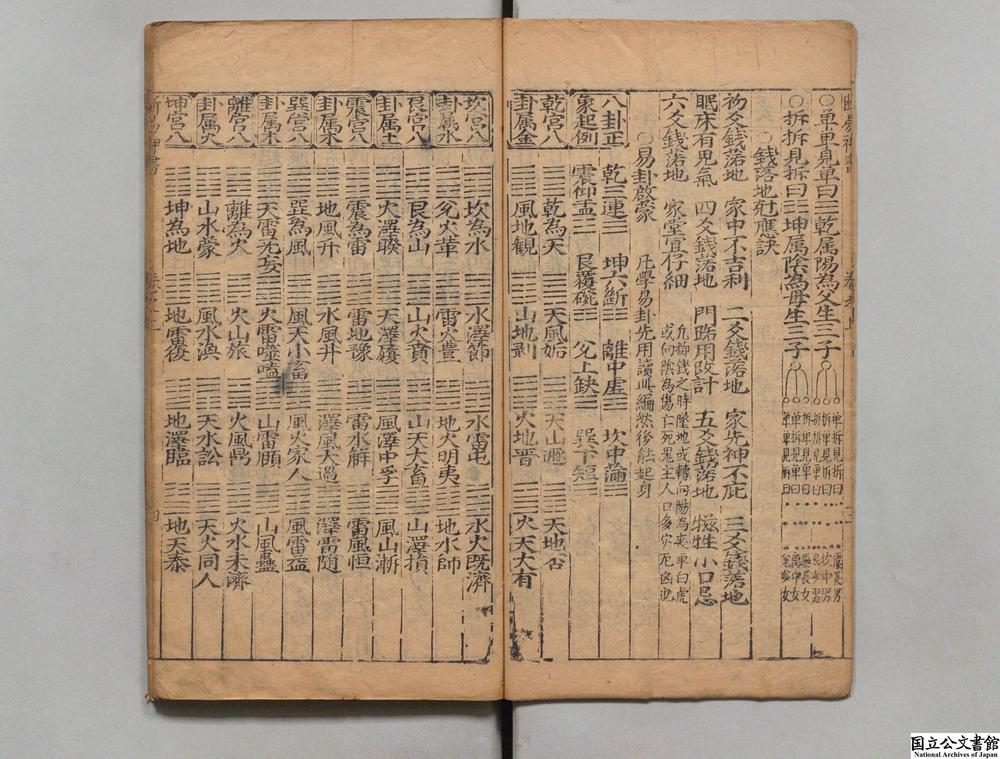 ○單單見單曰☰乾属陽為父生三子
○拆拆見拆曰☷坤属陰為母生三子
單拆見拆曰
拆單見拆曰
拆拆見單曰
單單見拆曰
○錢落地尅應訣
初爻錢落地 家中不吉利 二爻錢落地 家先神不庇 三爻錢落地
眠床有鬼氣 四爻錢落地 門路用改計 五爻錢落地 犠牲小口忌
六爻錢落地 家堂宜仔細 凡擲錢之時墜地或轉向陽為來單曰虎
或向陰為傷亡死鬼主人口多灾死凶也
○易卦啟蒙 凡學易卦先用讀此編然後能起身
八卦正 乾三連☰ 坤六斷☷ 離中虛☲ 坎中滿☵
象起例 震仰盂☳ 艮覆碗☶ 兊上缺☱ 巽下短☴
乾宮八 乾為天 天風姤 天山遯 天地否
卦属金 風地觀 山地剥 火地晋 火天大有
坎宮八 坎為水 水澤節 水雷屯 水火既濟
卦属水 澤火革 雷火豊 地火明夷 地水師
艮宮八 艮為山 山火賁 山天大畜 山澤損
卦属土 火澤睽 天澤履 風澤中孚 風山漸
震宮八 震為雷 雷地豫 雷水解 雷風恒
卦属木 地風升 水風井 澤風大過 澤雷随
巽宮八 巽為風 風天小畜 風火家人 風雷益
卦属木 天雷无妄 火雷噬嗑 山雷頤 山風蠱
離宮八 離為火 火山旅 火風鼎 火水未濟
卦属火 山水蒙 風水渙 天水訟 天火同人
坤宮八 坤為地 地雷復 地澤臨 地天泰
四
国立公文書館
National Archives of Japan